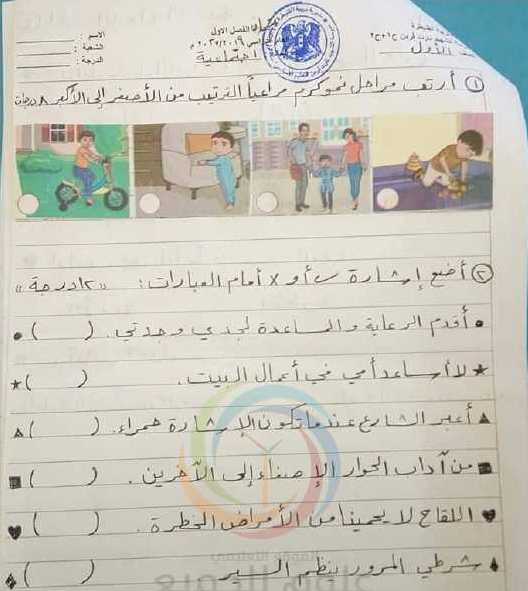 الاسم :
الشعبة :
الدرجة :
الفصل الأول
اجتماعية
الأول
① أرتب مراحل نمو كرم مراعياً الترتيب من الأصغر إلى الأكبر ٨ درجات
② أضع إشارة √ أو x أمام العبارات : «١٢ درجة»
أقدم الرعاية والمساعدة لجدي وجدتي . ( )
لا أساعد أمي في أعمال البيت . ( )
أعبر الشارع عندما تكون الإشارة حمراء . ( )
من آداب الحوار الإصغاء إلى الآخرين . ( )
اللقاح لا يحمينا من الأمراض الخطرة . ( )
شرطي المرور ينظم السير ( )